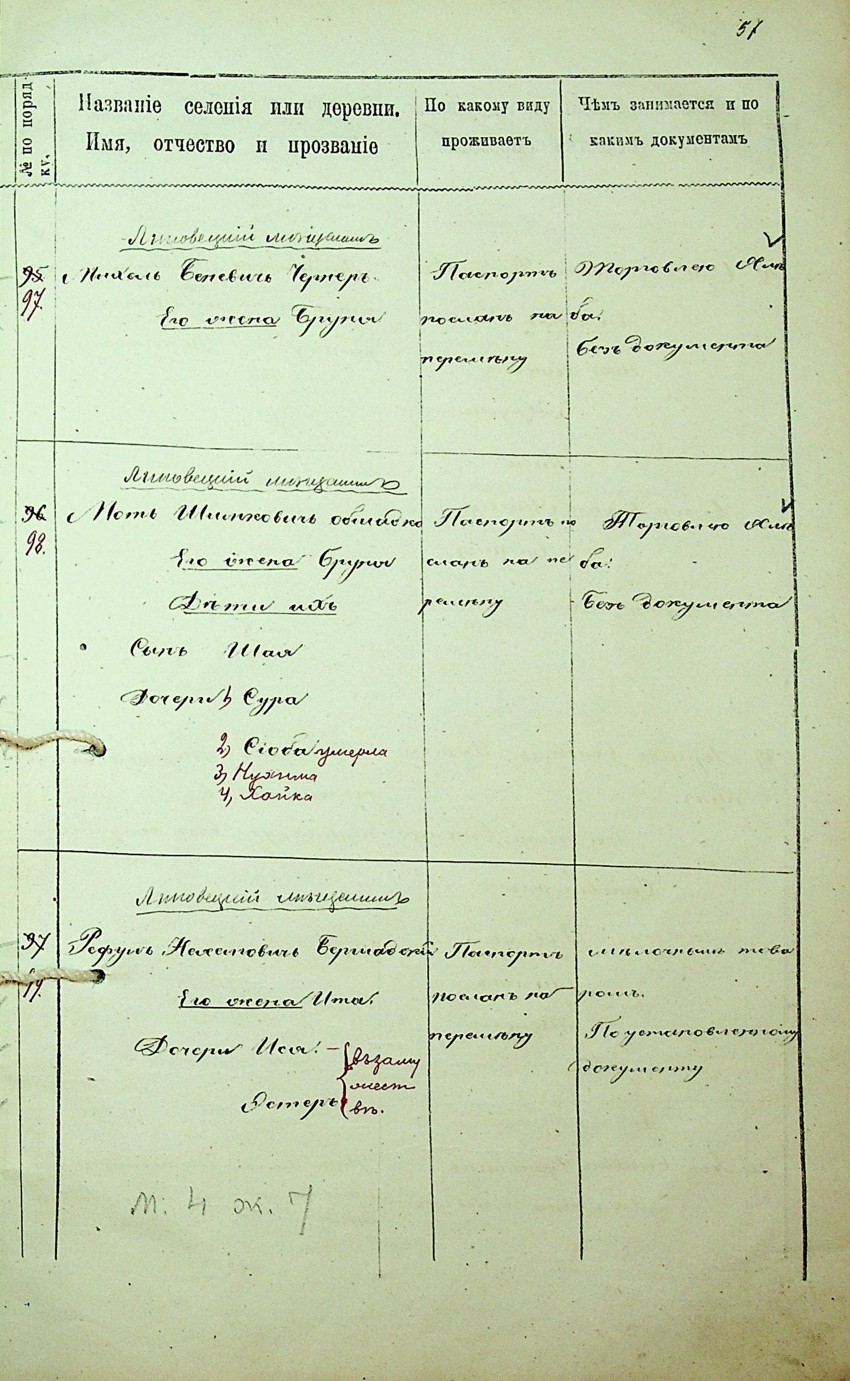 57
№ по поряд-
ку.
Названіе селенія или деревни.
Имя, отчество и прозваніе
По какому виду
проживаетъ
Чѣмъ занимается и по
какимъ документамъ
Липовецкій мѣщанинъ
95
97.
Его жена Бруня
Паспортъ
посланъ на
перемѣну
Торговлею хлѣ
ба.
безъ документа
Липовецкій мѣщанинъ
96
98.
Моть
Его жена Бруня
Дѣти ихъ
Сынъ Шая
Дочери 1) Сура
2) Сіоба умерла
3) Нухима
4) Хайка
Паспортъ по
сланъ на пе
ремѣну
Торговлею хлѣ
ба.
Безъ документа
Липовецкій мѣщанинъ
97
Его жена Ита.
Дочери Ися. – въ заму
жест
Эстеръ вѣ.
Паспортъ
посланъ на
перемѣну
мѣлочнымъ това
ромъ.
По установленному
документу
м. 4 ж. 7